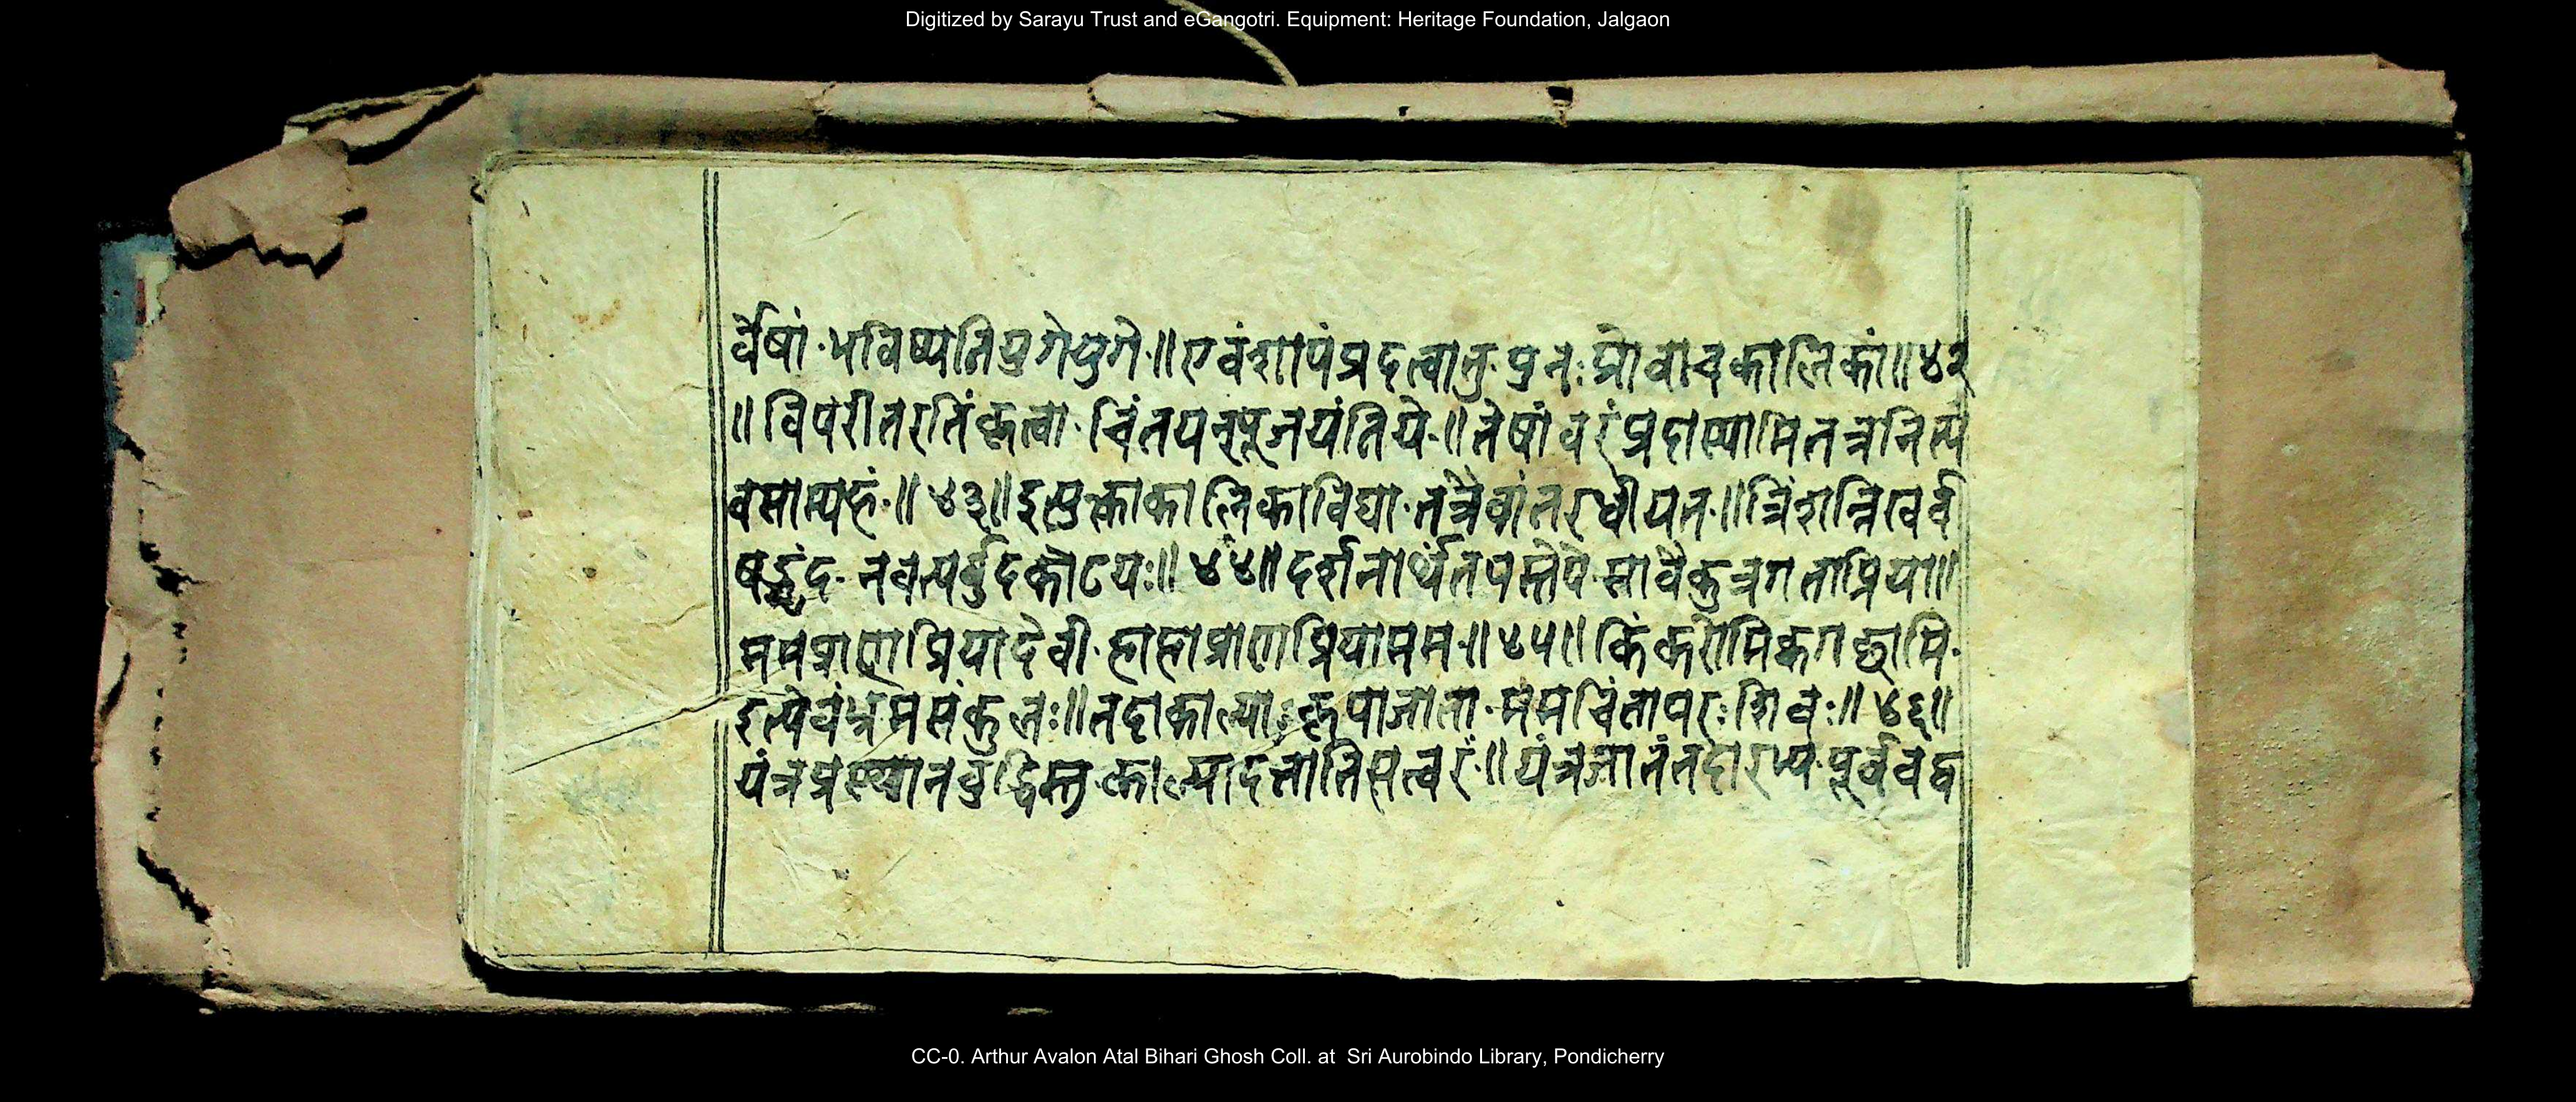 Digitized by Sarayu Trust and eGangotri. Equipment: Heritage Foundation, Jalgaon
र्वेषां भविष्यतियुगेयुगे॥एवंशापंप्रदत्वातु पुनःप्रोवाचकालिकां॥४२
॥विपरीतरतिंकृत्वा चिंतयन्पूजयंतिये॥तेषांवरंप्रदास्यामितत्रनित्यं
वसाम्यहं॥४३॥इत्युक्त्वाकालिकाविद्या तत्रैवांतरधीयत॥त्रिंशन्निखर्व
षड्वृंद नवत्यर्वुदकोटयः॥४४॥दर्शनार्थंतपस्तेपे सावैकुत्रगताप्रिया॥
ममप्राणप्रियादेवी हाहाप्राणप्रियामम॥४५॥किंकरोमिक्वगछामि
इत्येवंभ्रमसंकुलः॥तदाकाल्याःकृपाजाता ममचिंतापरःशिवः॥४६॥
यंत्रप्रस्थानवुद्धिस्तु काल्यादत्तातिसत्वरं॥यंत्रजातंतदारभ्य पूर्ववद्वा
CC-0. Arthur Avalon Atal Bihari Ghosh Coll. at Sri Aurobindo Library, Pondicherry